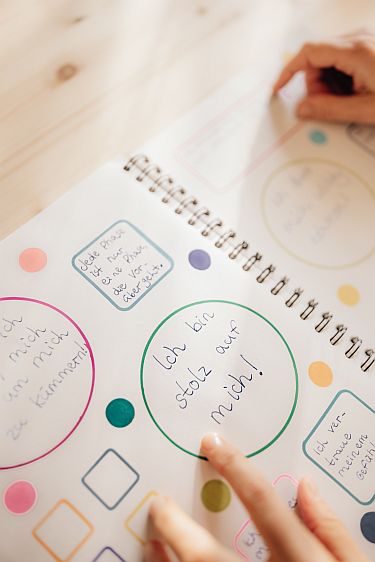 Jede Phase
ist nur
eine Phase,
die vor-
übergeht.
ich
mich
um mich
zu kümmern!
Ich bin
stolz auf
mich!
Ich ver-
traue
meinem
Gefühl!